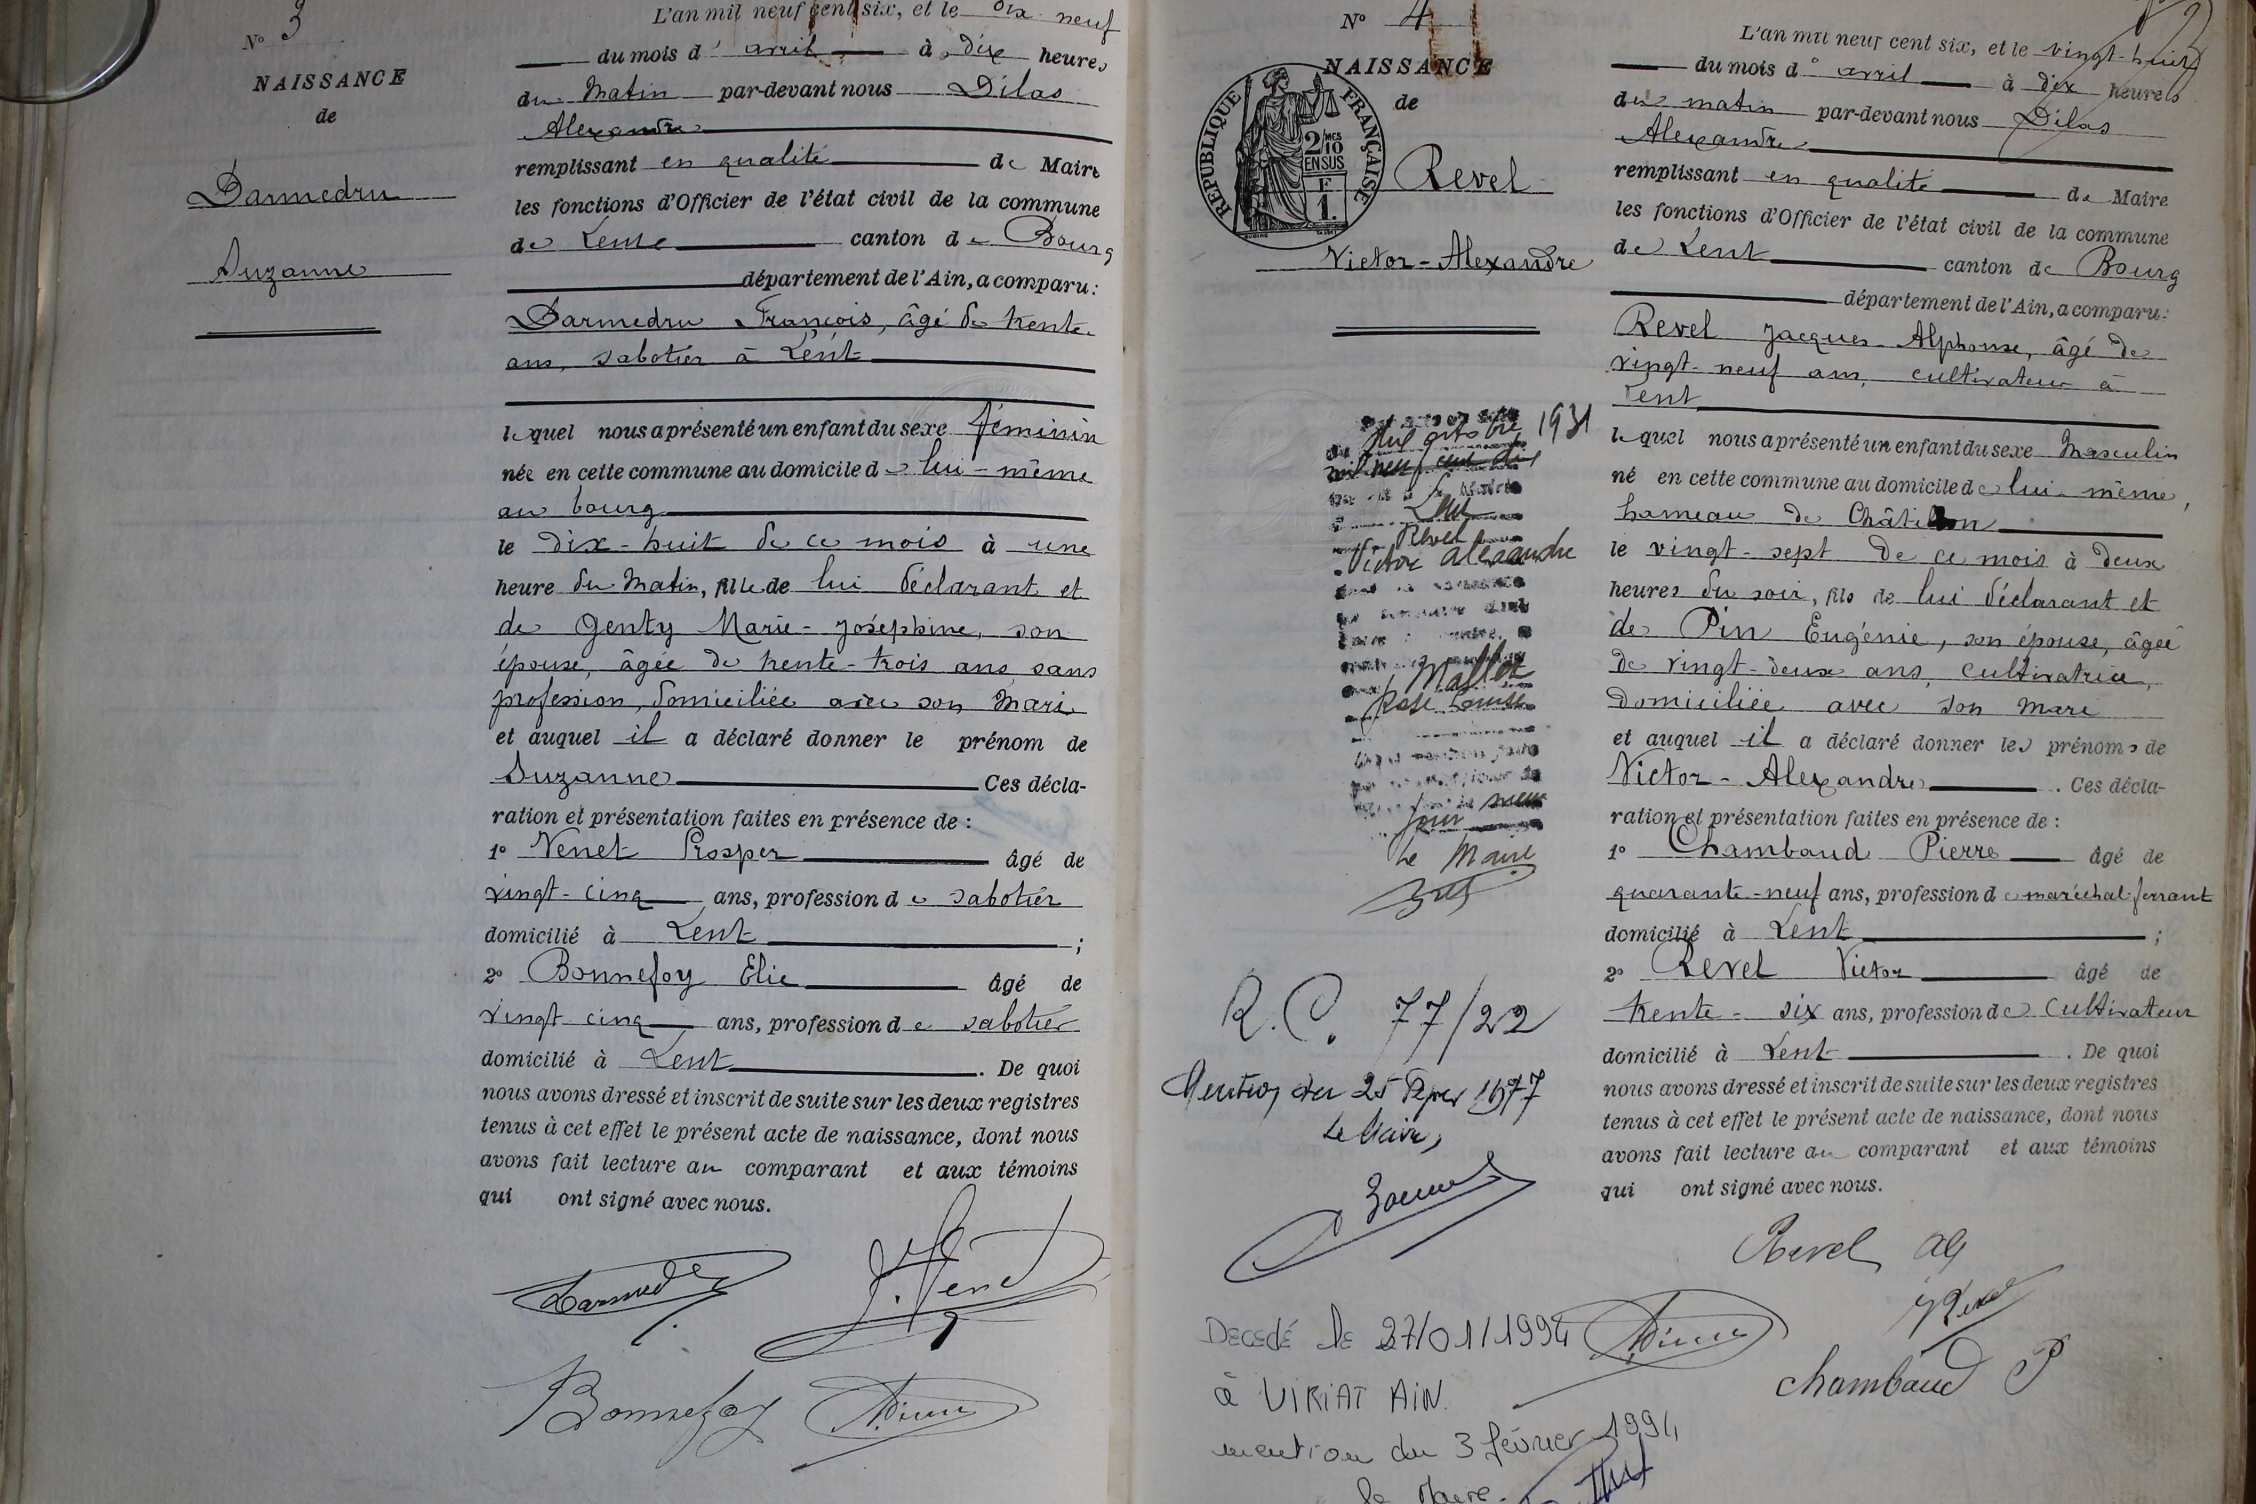 N° 3
NAISSANCE
de
Darmedru
Suzanne
L'an mil neuf cent six, et le dix-neuf
du mois d' avril à dix heures
du Matin par-devant nous Dilas
Alexandre
remplissant en qualité de Maire
les fonctions d'Officier de l'état civil de la commune
de Lent canton de Bourg
département de l'Ain, a comparu:
Darmedru François, âgé de trente
ans, sabotier à Lent
lequel nous a présenté un enfant du sexe féminin
née en cette commune au domicile de lui-même
au bourg
le dix-huit de ce mois à une
heure du Matin, fille de lui déclarant et
de Genty Marie-Joséphine, son
épouse, âgée de trente-trois ans, sans
profession, domiciliée avec son Mari
et auquel il a déclaré donner le prénom de
Suzanne Ces décla-
ration et présentation faites en présence de :
1° Venet Prosper âgé de
vingt-cinq ans, profession de sabotier
domicilié à Lent ;
2° Bonnefoy Elie âgé de
vingt cinq ans, profession de sabotier
domicilié à Lent . De quoi
nous avons dressé et inscrit de suite sur les deux registres
tenus à cet effet le présent acte de naissance, dont nous
avons fait lecture au comparant et aux témoins
qui ont signé avec nous.
Bonnefoy
N° 4
NAISSANCE
de
RÉPUBLIQUE FRANÇAISE
2/10 MES
EN SUS
F
1.
Revel
Victor-Alexandre
octobre 1931
Lent
Revel
Victor Alexandre
Rose Louise
Le Maire
R.C. 77/22
Mention du 25 1977
Le Maire,
DECEDÉ le 27/01/1994
à VIRIAT AIN.
mention du 3 février 1994
le Maire.
L'an mil neuf cent six, et le vingt-huit
du mois d' avril à dix heures
du matin par-devant nous Dilas
Alexandre
remplissant en qualité de Maire
les fonctions d'Officier de l'état civil de la commune
de Lent canton de Bourg
département de l'Ain, a comparu:
Revel Jacques-Alphonse, âgé de
vingt-neuf ans, cultivateur à
Lent
lequel nous a présenté un enfant du sexe Masculin
né en cette commune au domicile de lui-même,
hameau de Châtillon
le vingt-sept de ce mois à deux
heures du soir, fils de lui déclarant et
de Pin Eugénie, son épouse, âgée
de vingt-deux ans, cultivatrice,
domiciliée avec son mari
et auquel il a déclaré donner les prénoms de
Victor-Alexandre . Ces décla-
ration et présentation faites en présence de :
1° Chambaud Pierre âgé de
quarante-neuf ans, profession de maréchal-ferrant
domicilié à Lent ;
2° Revel Victor âgé de
trente-six ans, profession de cultivateur
domicilié à Lent . De quoi
nous avons dressé et inscrit de suite sur les deux registres
tenus à cet effet le présent acte de naissance, dont nous
avons fait lecture au comparant et aux témoins
qui ont signé avec nous.
Revel
chambaud P